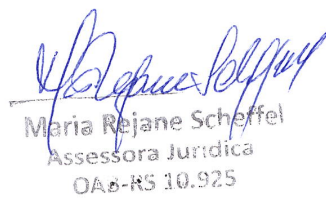 Maria Rejane Scheffel
Assessora Juridica
OAB-RS 10.925